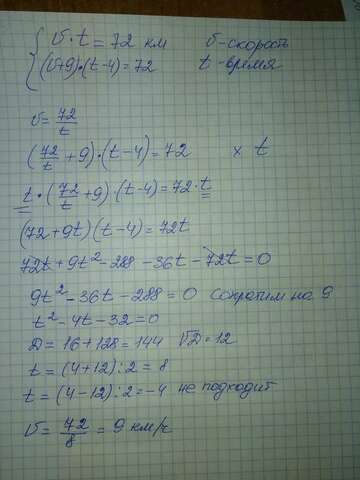 v·t = 72 км v-скорость
(v+9)·(t-4)=72 t-время
v = 72/t
(72/t + 9)·(t-4)=72 × t
t·(72/t + 9)·(t-4)=72·t
(72+9t)(t-4)=72t
72t+9t²-288-36t-72t=0
9t²-36t-288=0 Сократим на 9
t²-4t-32=0
D=16+128=144 √D=12
t=(4+12):2=8
t=(4-12):2=-4 не подходит
v = 72/8 = 9 км/ч